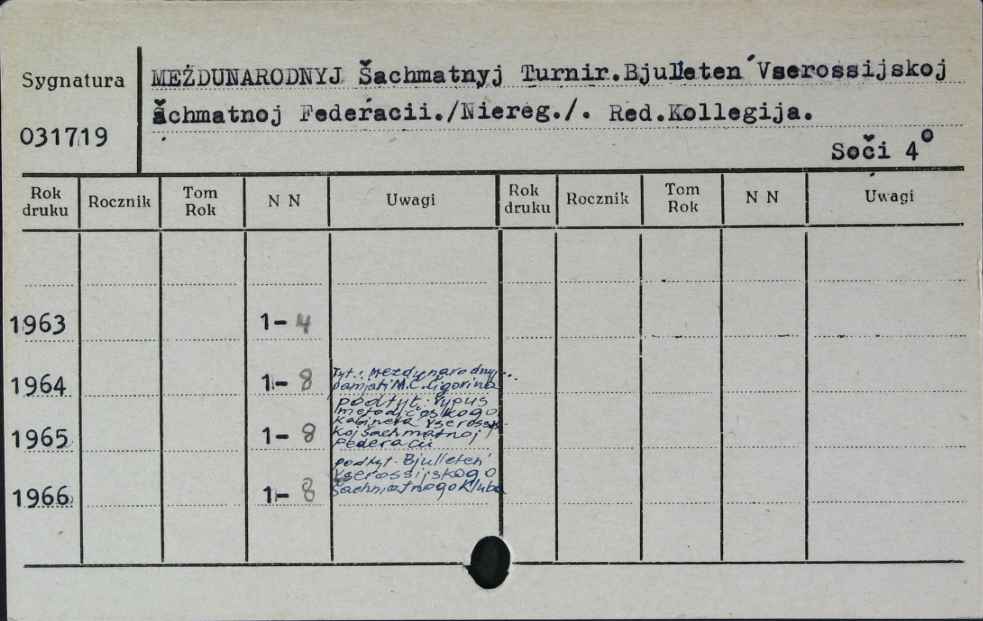 Sygnatura
031719
MEŽDUNARODNYJ Šachmatnyj Turnir.Bjulleten´Vserossijskoj
šachmatnoj Federacii./Niereg./. Red.Kollegija.
Soči 4°
Rok druku Rocznik Tom Rok N N Uwagi Rok druku Rocznik Tom Rok N N Uwagi
1963 1-4
1964 1-8
Tyt.: Meždunarodnyj...
pamjati M.Č.Čigorina
1965 1-8
podtyt. Vypus
metodičeskogo
kabineta Vserossijs-
koj Šachmatnoj
Federacii
1966 1-8
podtyt. Bjulleten'
Vserossijskogo
Šachmatnogo Kluba